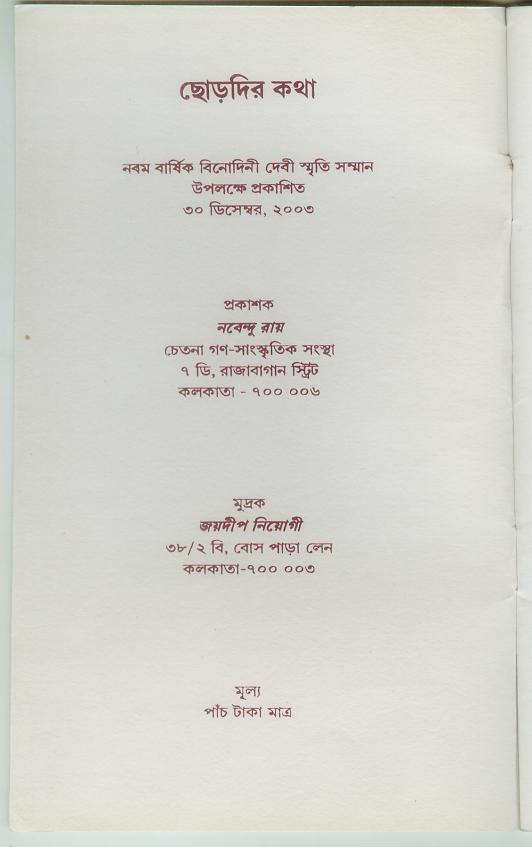 ছোড়দির কথা
নবম বার্ষিক বিনোদিনী দেবী স্মৃতি সম্মান
উপলক্ষে প্রকাশিত
৩০ ডিসেম্বর, ২০০৩
প্রকাশক
নবেন্দু রায়
চেতনা গণ-সাংস্কৃতিক সংস্থা
৭ ডি, রাজাবাগান স্ট্রিট
কলকাতা - ৭০০ ০০৬
মুদ্রক
জয়দীপ নিয়োগী
৩৮/২ বি, বোস পাড়া লেন
কলকাতা-৭০০ ০০৩
মূল্য
পাঁচ টাকা মাত্র